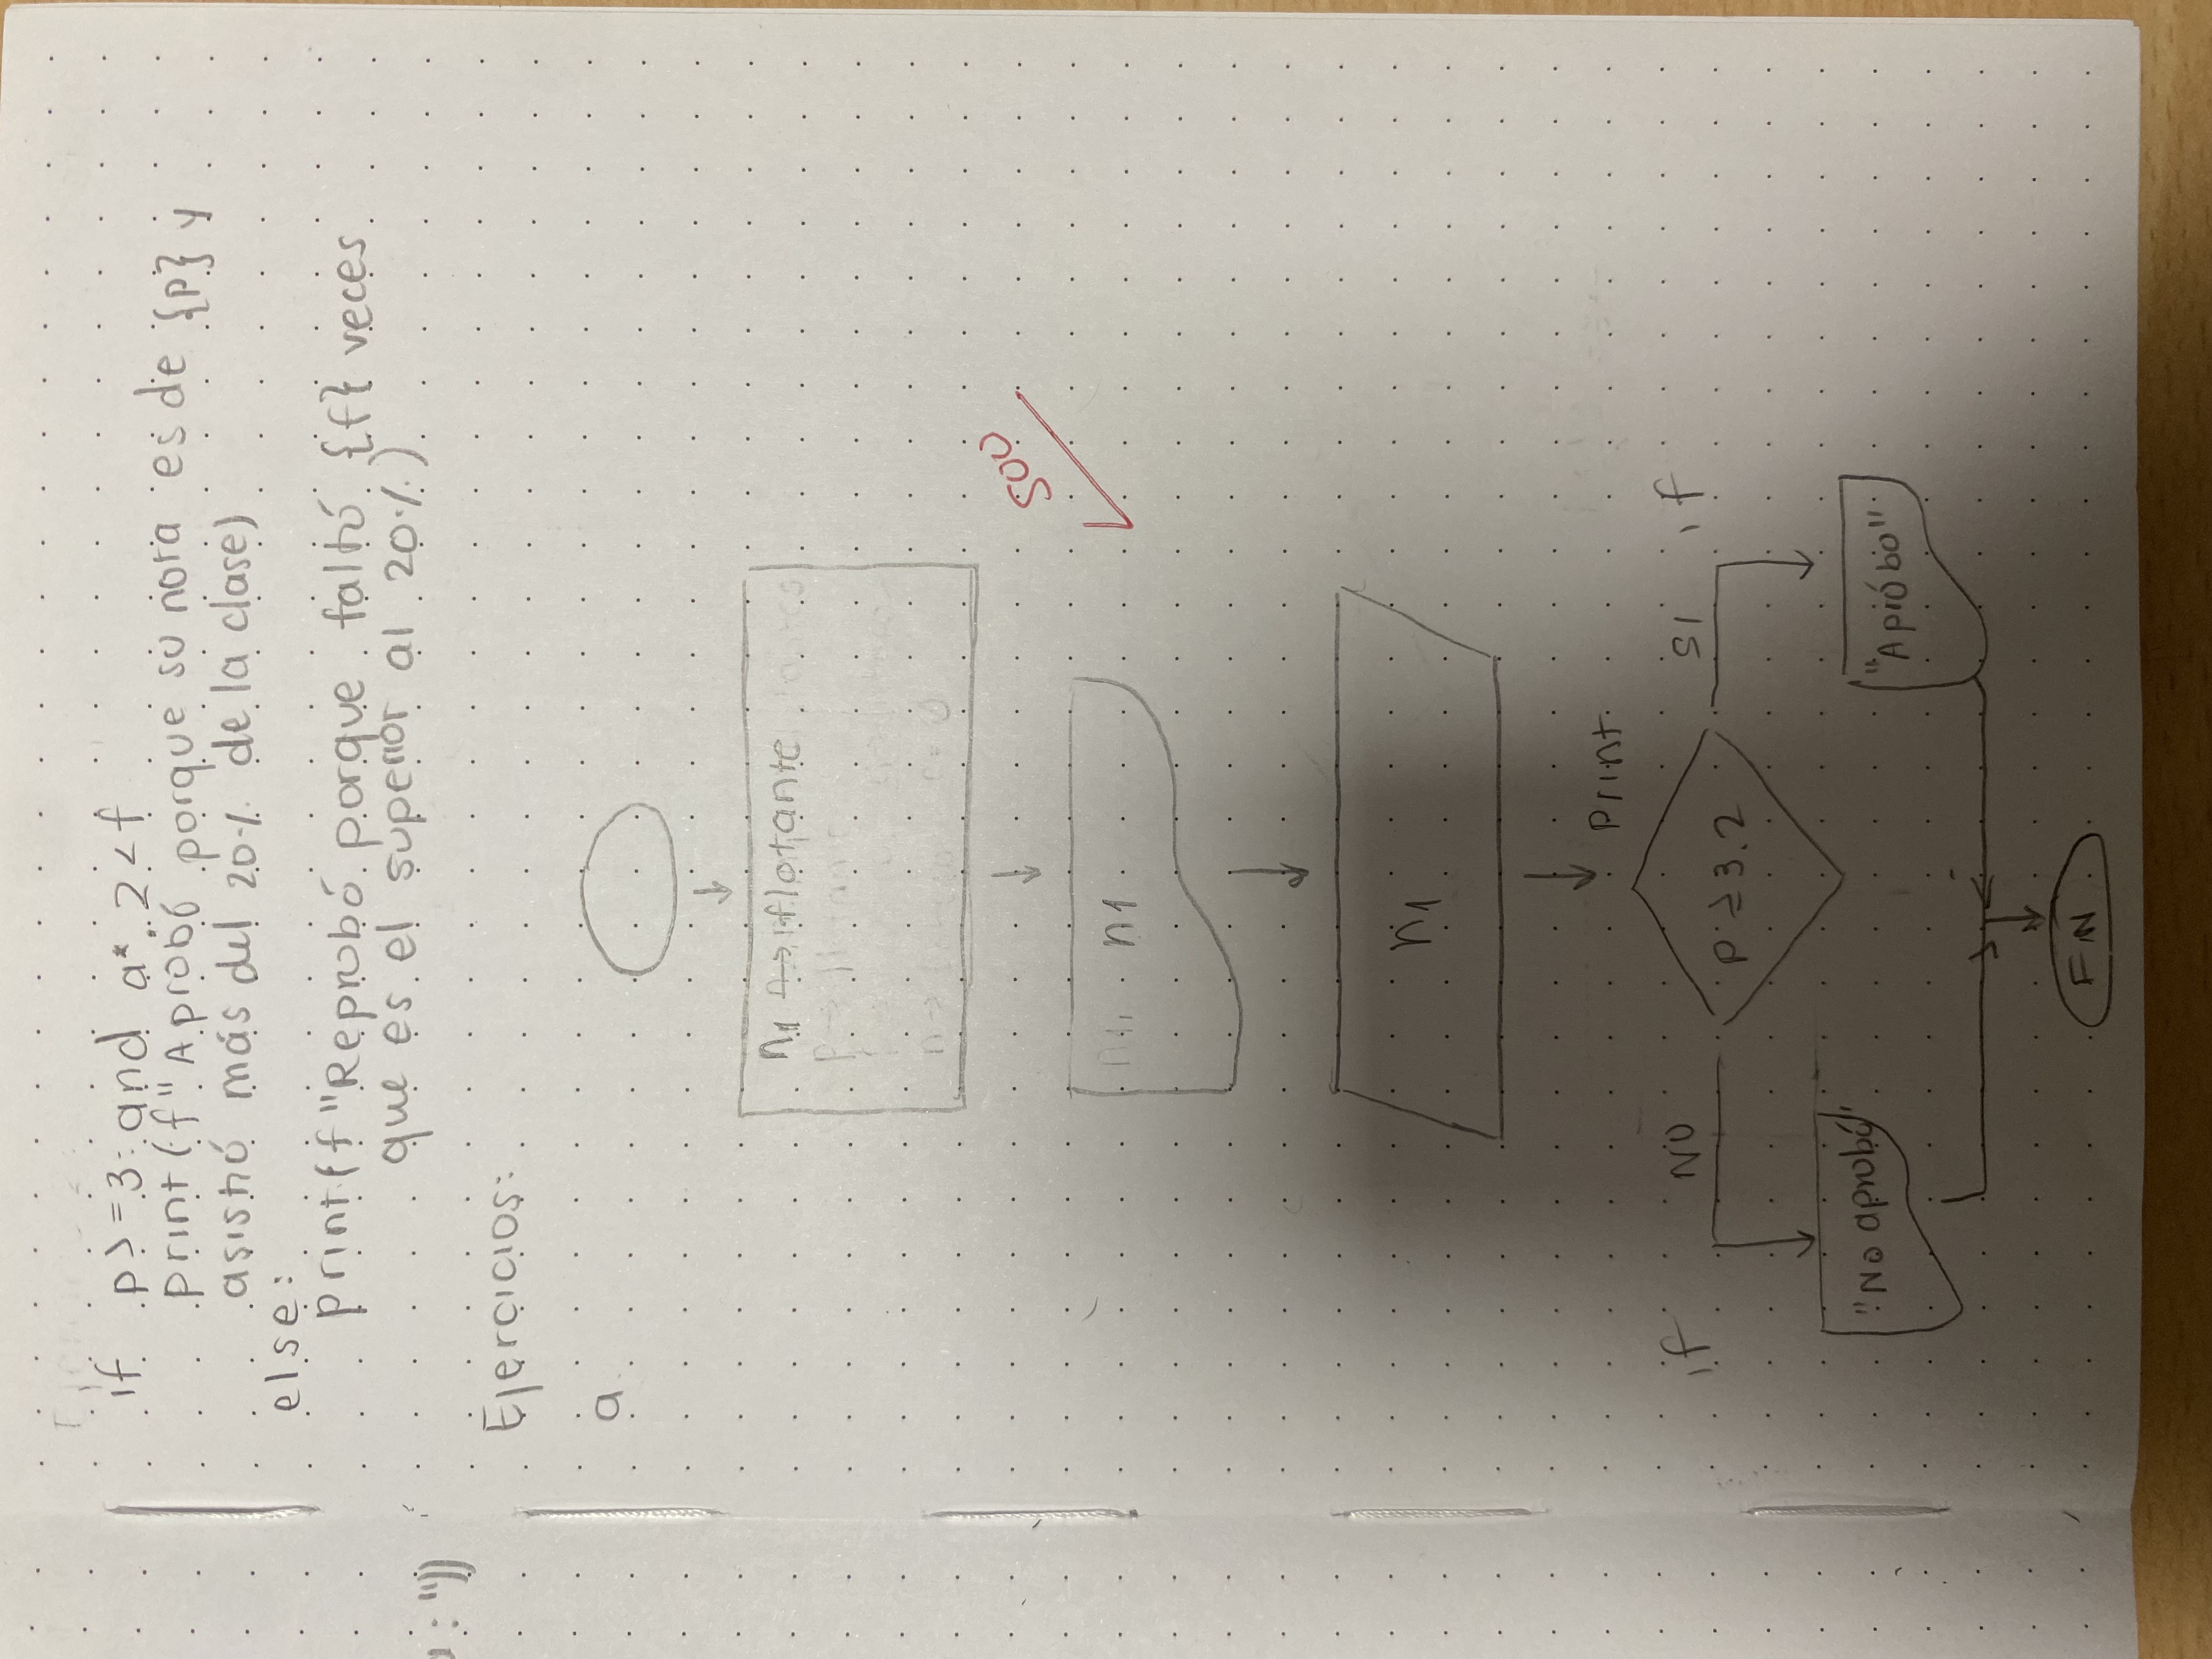 if p>=3: and a*.2<f
print(f"Aprobó porque su nota es de {p} y
asistió más del 20% de la clase)
else:
print(f"Reprobó porque faltó {f} veces
que es el superior al 20%)
: "))
Ejercicios:
a.
n1 → flotante
n1
500
n1
print
if NO SI if
p ≥ 3.2
"No aprobó"
"Apróbo"
FIN